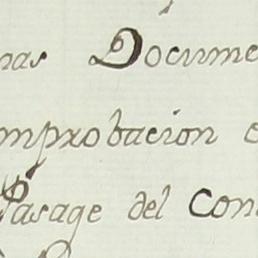 mas Docume
mprobacion e
Pasage del Con